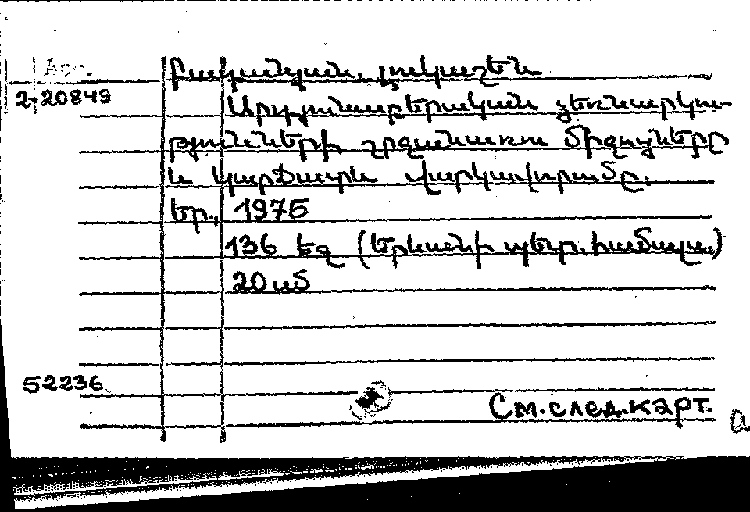 2-20849
Արդյունաբերական ձեռնարկու-
թյունների շրջանառու միջոցները
և կարճատև վարկավորումը.
Եր., 1975
136 եջ (Երևանի պետ. համալս.)
20 սմ
52236
См. след. карт.